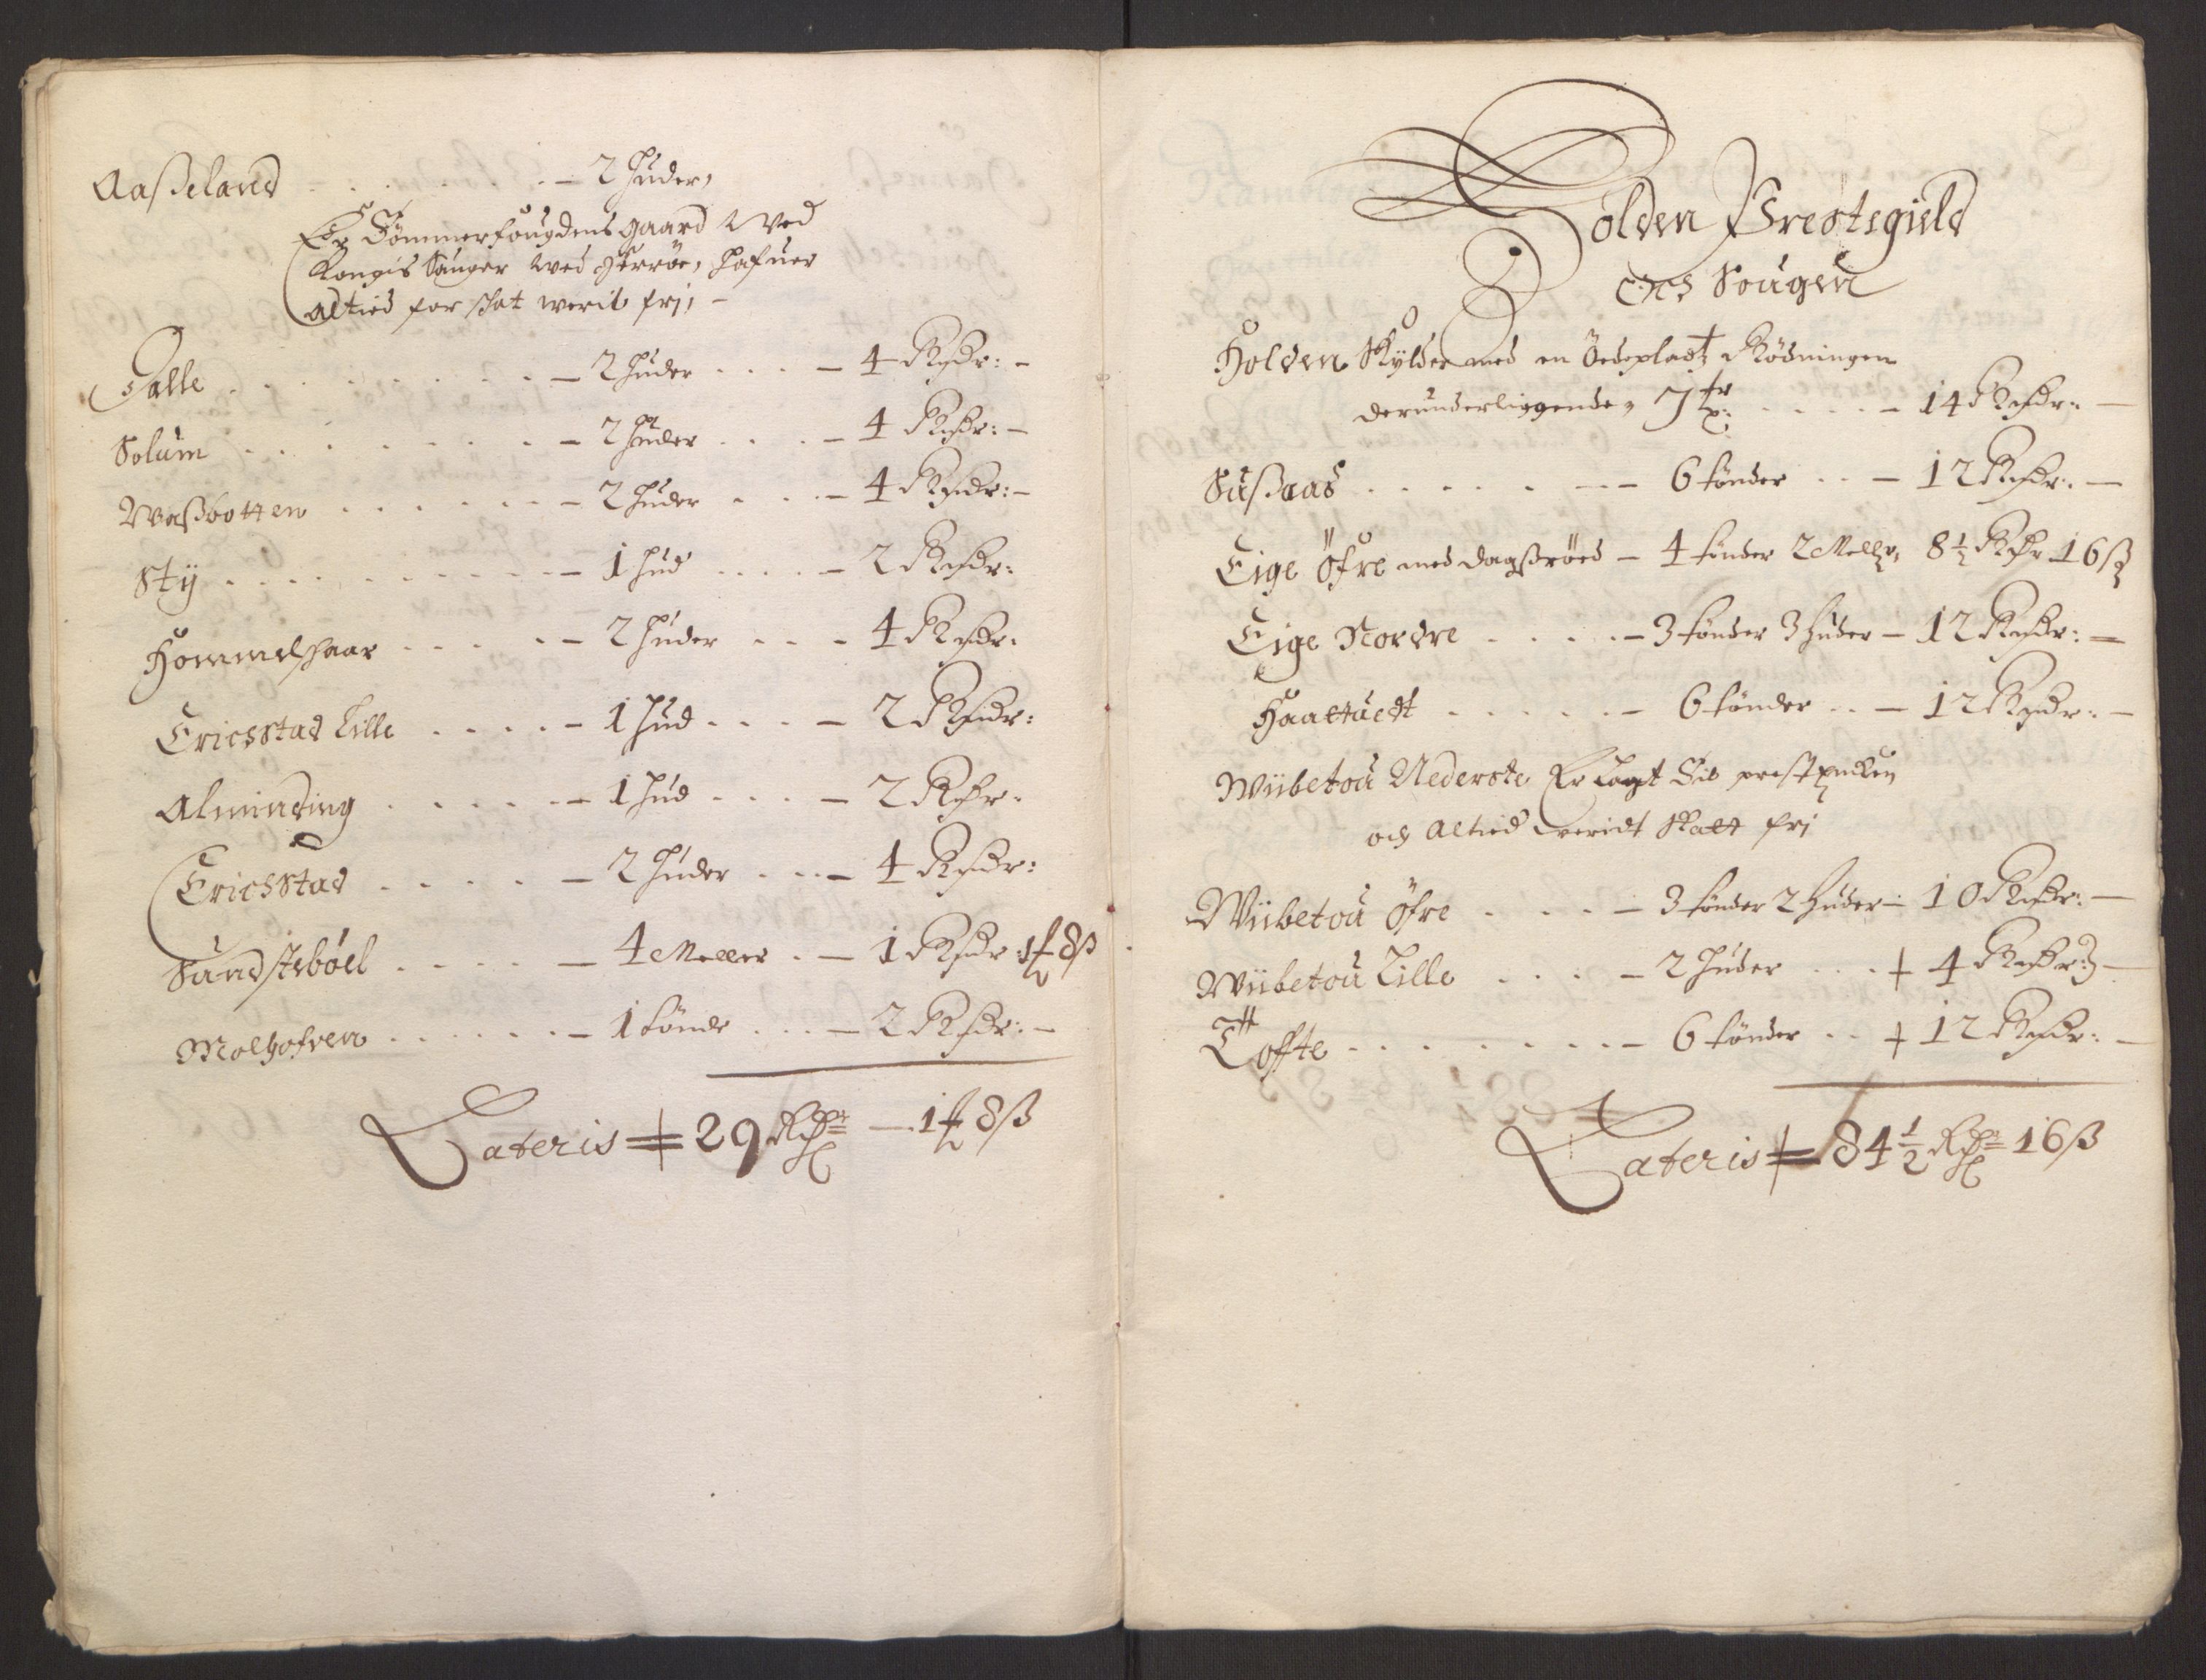 Aaßeland . . . . . - 2 huder,
Er Tømmerfougdens gaard Ved
Kongis Sauger wed Herröe, hafuer
altied for skat werit frj, -
Falle . . . . . - 2 huder . . . - 4 Rixdr: -
Solum . . . . . - 2 huder . . . - 4 Rixdr: -
Waßbotten . . . . . - 2 huder . . . - 4 Rixdr: -
Stÿ . . . . . - 1 hud . . . - 2 Rixdr:
Hommelhaar . . . . - 2 huder . . . 4 Rixdr.
Ericsstad Lille . . . . - 1 hud . . . - 2 Rixdr:
Alminding . . . . . - 1 hud . . . - 2 Rdr.
Ericsstad . . . . - 2 huder . . . - 4 Rixdr:
Sundstsböel . . . . - 4 Meller . - 1 Rixdr 1 ℔ 8 ß
Molhofven . . . . . - 1 tönde . . . - 2 Rixdr: -
Lateris = 29 Rdr — 1 ℔ 8 ß
Holden Prestegield
och Sougen
Holden Skylder med en Ödeplads Rödningen
derunderliggende, 7 tr: . . . - 14 Rixdr: -
Sußaas . . . . . - 6 tönder . . - 12 Rixdr. -
Eige Öfre med dagßröed - 4 tönder 2 Mellr, 8½ Rdr 16 ß
Eige Nordre . . . . - 3 tönder 3 huder - 12 Rixdr: -
Haattuedt . . . . . - 6 tönder . . - 12 Rixdr. -
Wiibetou Nederste Er Lagt til prestenchen
och Altied veridt Skatt frj
Wiibetou Öfre . . . - 3 tönder 2 huder - 10 Rixdr: -
Wiibetou Lille . . . - 2 huder . . . + 4 Rixdr: -
Tofte . . . . . . - 6 tönder . . + 12 Rixdr: -
Lateris = 84½ Rdr 16 ß